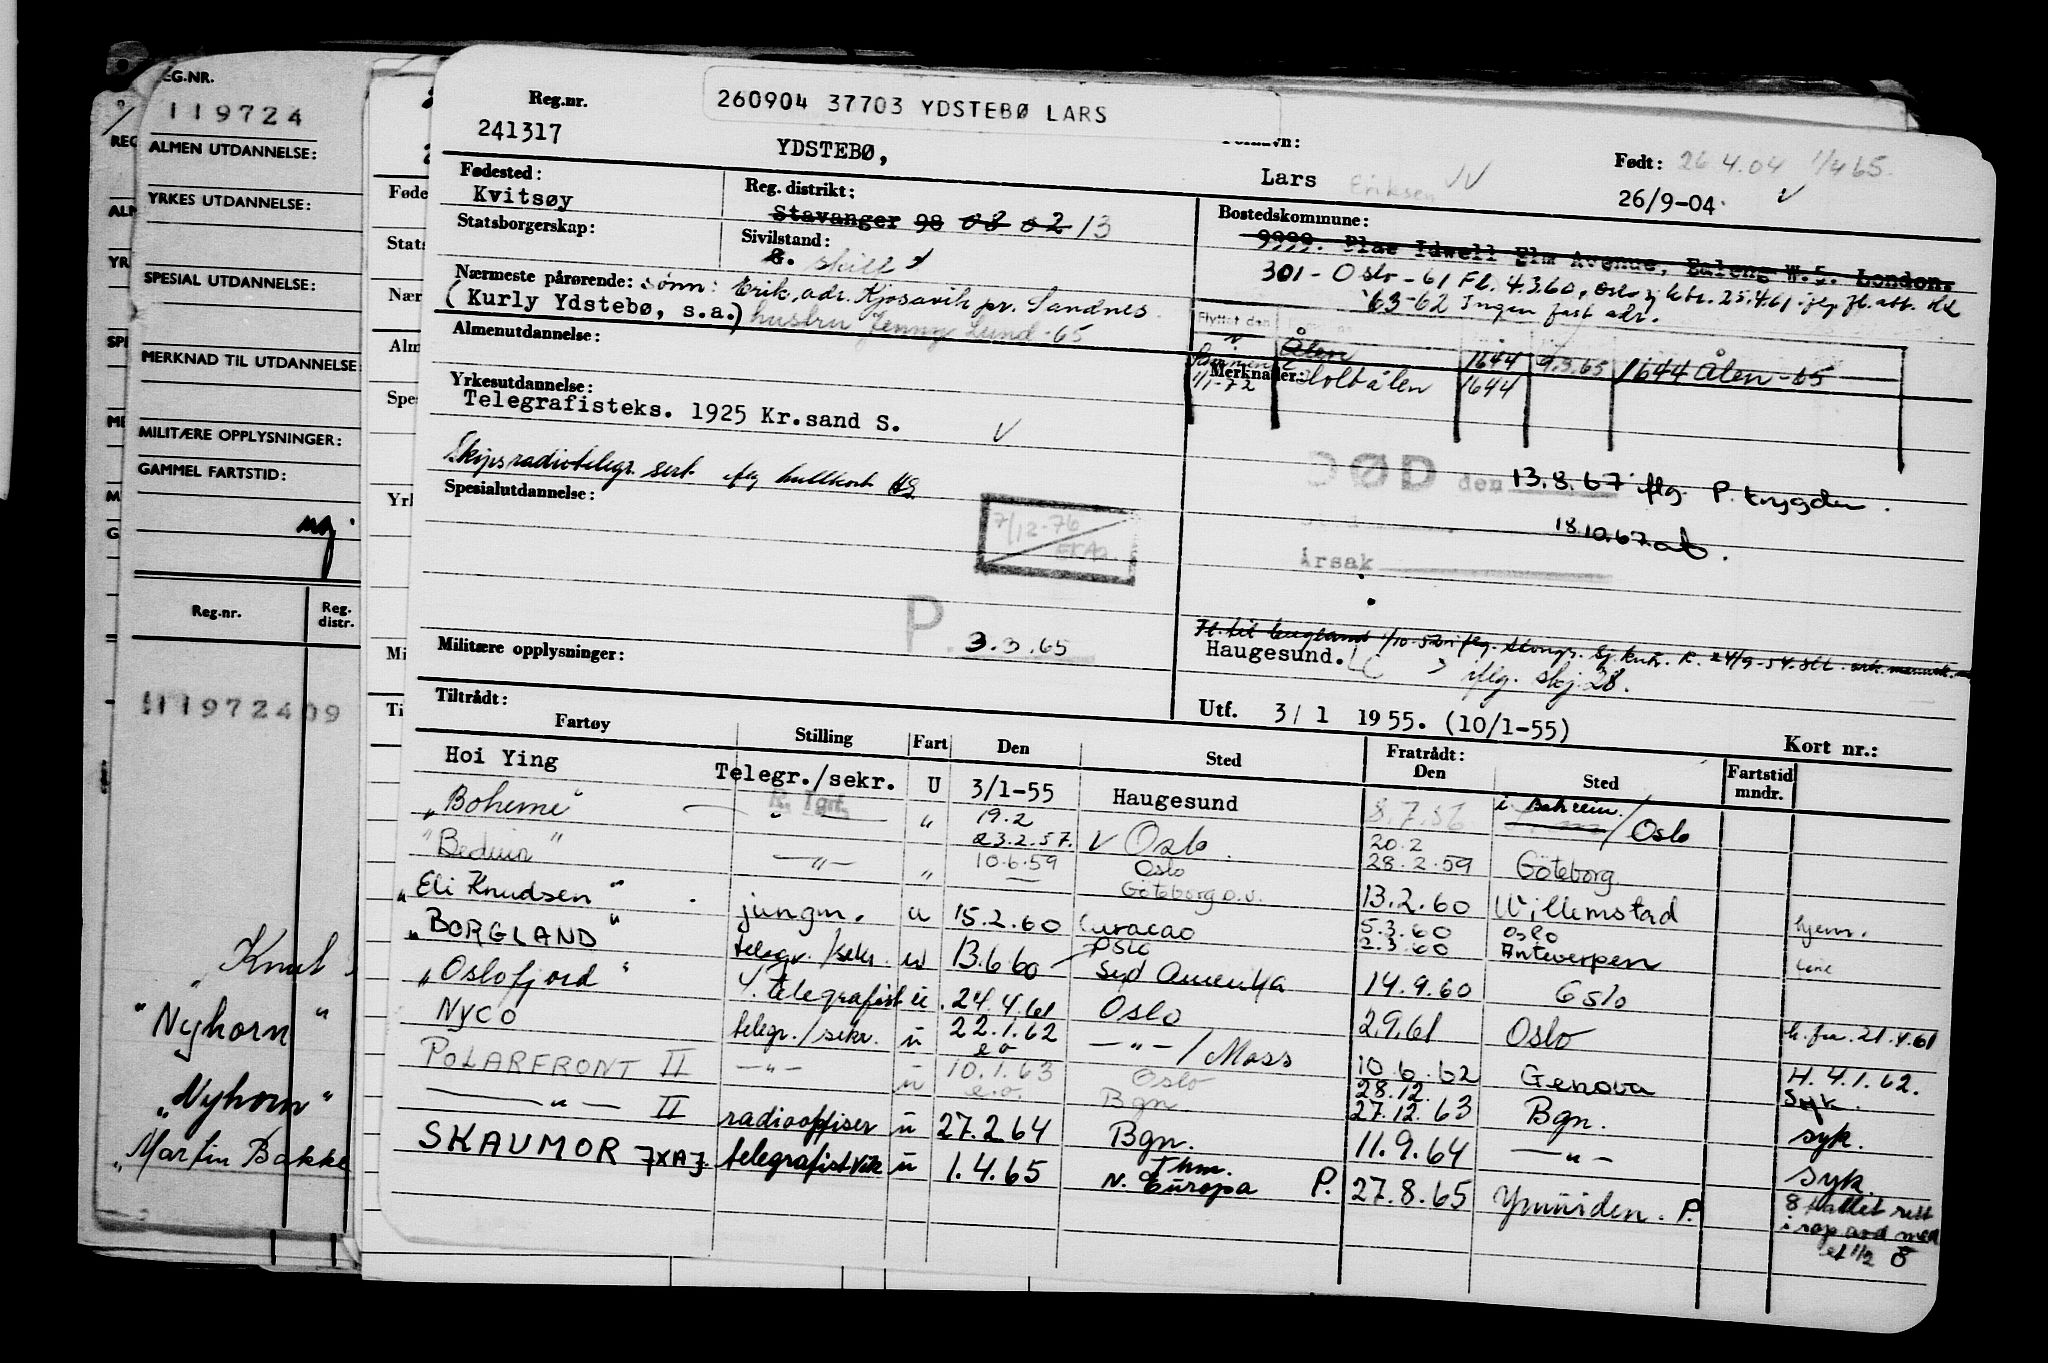 EG.NR.
119724
ALMEN UTDANNELSE:
YRKES UTDANNELSE:
SPESIAL UTDANNELSE:
MERKNAD TIL UTDANNELSE
MILITÆRE OPPLYSNINGER:
GAMMEL FARTSTID:
Reg.nr.
Reg. distr.
11972409
Knut
"Nyhorn"
"Nyhorn"
"Martin Bakke
Reg.nr.
260904 37703 YDSTEBØ LARS
241317
YDSTEBØ,
Lars Eriksen
Født: 26.4.04 1/4 65.
26/9-04
Fødested:
Kvitsøy
Reg. distrikt:
Stavanger 98 03 02 13
Bostedskommune:
9999. Plae Idwell Elm Avenue, Ealeng W.5. London.
301 - Oslo - 61 Fl. 4.3.60,
'63-62 Ingen fast adr.
Statsborgerskap:
Sivilstand:
G. skilt
Nærmeste pårørende: sønn: Erik, adr. Kjosavik pr. Sandnes.
(Kurly Ydstebø, s.a.) hustru Jenny Lund -65
Flyttet den
Ålen 1644 9.3.65 1644 Ålen -65
1/1-72 Holtålen 1644
Merknader:
Almenutdannelse:
Yrkesutdannelse:
Telegrafisteks. 1925 Kr.sand S.
Skipsradiotelegr. sert. iflg hullkort
Spesialutdannelse:
7/12-76
DØD den 13.8.67 iflg. P. trygden.
18.10.67
Årsak
P. 3.3.65
Militære opplysninger:
Haugesund.
iflg. skj. 28.
Tiltrådt:
Utf. 3/1 1955. (10/1-55)
Kort nr.:
Fartøy Stilling Fart Den Sted Fratrådt: Den Sted Fartstid mndr.
Hoi Ying Telegr./sekr. U 3/1-55 Haugesund 8.7.56 i Bahrein/Oslo
"Boheme" " 19.2 23.2.57. Oslo 20.2 28.2.59 Göteborg
"Beduin" -"- " 10.6.59 Oslo Göteborg 13.2.60 Willemstad
"Eli Knudsen" jungm. u 15.2.60 Curacao 5.3.60 Oslo hjem.
"BORGLAND" telegr./sekr. u 13.6.60 Oslo Syd Amerika 2.3.60 Antwerpen
14.9.60 Oslo
"Oslofjord" telegrafist u 24.4.61 Oslo 2.9.61 Oslo h. fra 21.4.61
NYCO telegr./sekr. u 22.1.62 -"-/Moss 10.6.62 Genova H. 4.1.62. Syk.
POLARFRONT II -"- u 10.1.63 Oslo Bgn. 28.12. 27.12.63 Bgn. syk.
-"- II radiooffiser u 27.2.64 Bgn. 11.9.64 -"- syk
SKAUMOR telegrafist vik u 1.4.65 Thm. N. Europa P. 27.8.65 Ymuiden. P.